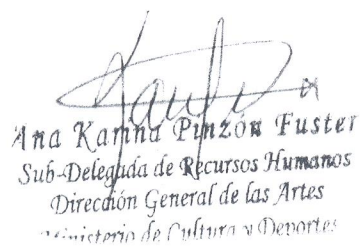 Ana Karina Pinzón Fuster
Sub-Delegada de Recursos Humanos
Dirección General de las Artes
Ministerio de Cultura y Deportes